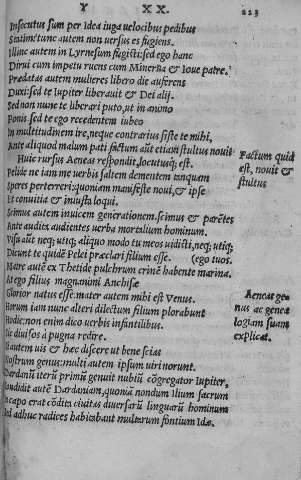 Υ XX. 223
Insecutus sum per Idea iuga uelocibus pedibus
Sentimetunc autem non uersus es fugiens.
Illinc autem in Lyrnesum fugisti: sed ego hanc
Dirui cum impetu ruens cum Minerua & Ioue patre.
Prædatas autem mulieres libero die auferens
Duxi: sed te Iupiter liberauit & Dei alij.
Sed non nunc te liberari puto, ut in animo
Ponis: sed te ego recedentem iubeo
In multitudinem ire, neque contrarius siste te mihi,
Ante aliquod malum pati factum aūt etiam stultus nouit
Huic rursus Aeneas respondit, locutusq; est.
Pelide ne iam me uerbis saltem dementem tanquam
Speres perterreri: quoniam manifeste noui, & ipse
Et conuitia & iniusta loqui.
Scimus autem inuicem generationem. scimus & parētes
Ante audita audientes uerba mortalium hominum.
Visu aūt neq; utiq; aliquo modo tu meos uidisti, neq; utiq;
Dicunt te quidē Pelei præclari filium esse. (ego tuos.
Matre autē ex Thetide pulchrum crinē habente marina.
Atego filius magnanimi Anchisæ
Glorior natus esse. mater autem mihi est Venus.
Horum iam nunc alteri dilectum filium plorabunt
Hodie: non enim dico uerbis infantilibus.
Sic diuisos à pugna redire.
Si autem uis & hæc discere ut bene scias
Nostrum genus: multi autem ipsum uiri norunt.
Dardanū iterū primū genuit nubiū cōgregator Iupiter,
Condidit autē Dardaniam, quonā nondum Ilium sacrum
In capo erat cōdita ciuitas diuersarū linguarū hominum
Sed adhuc radices habitabant multarum fontium Idæ.
Factum quid
est, nouit &
stultus
Aeneas ge
nus ac genea
logiam suam
explicat.